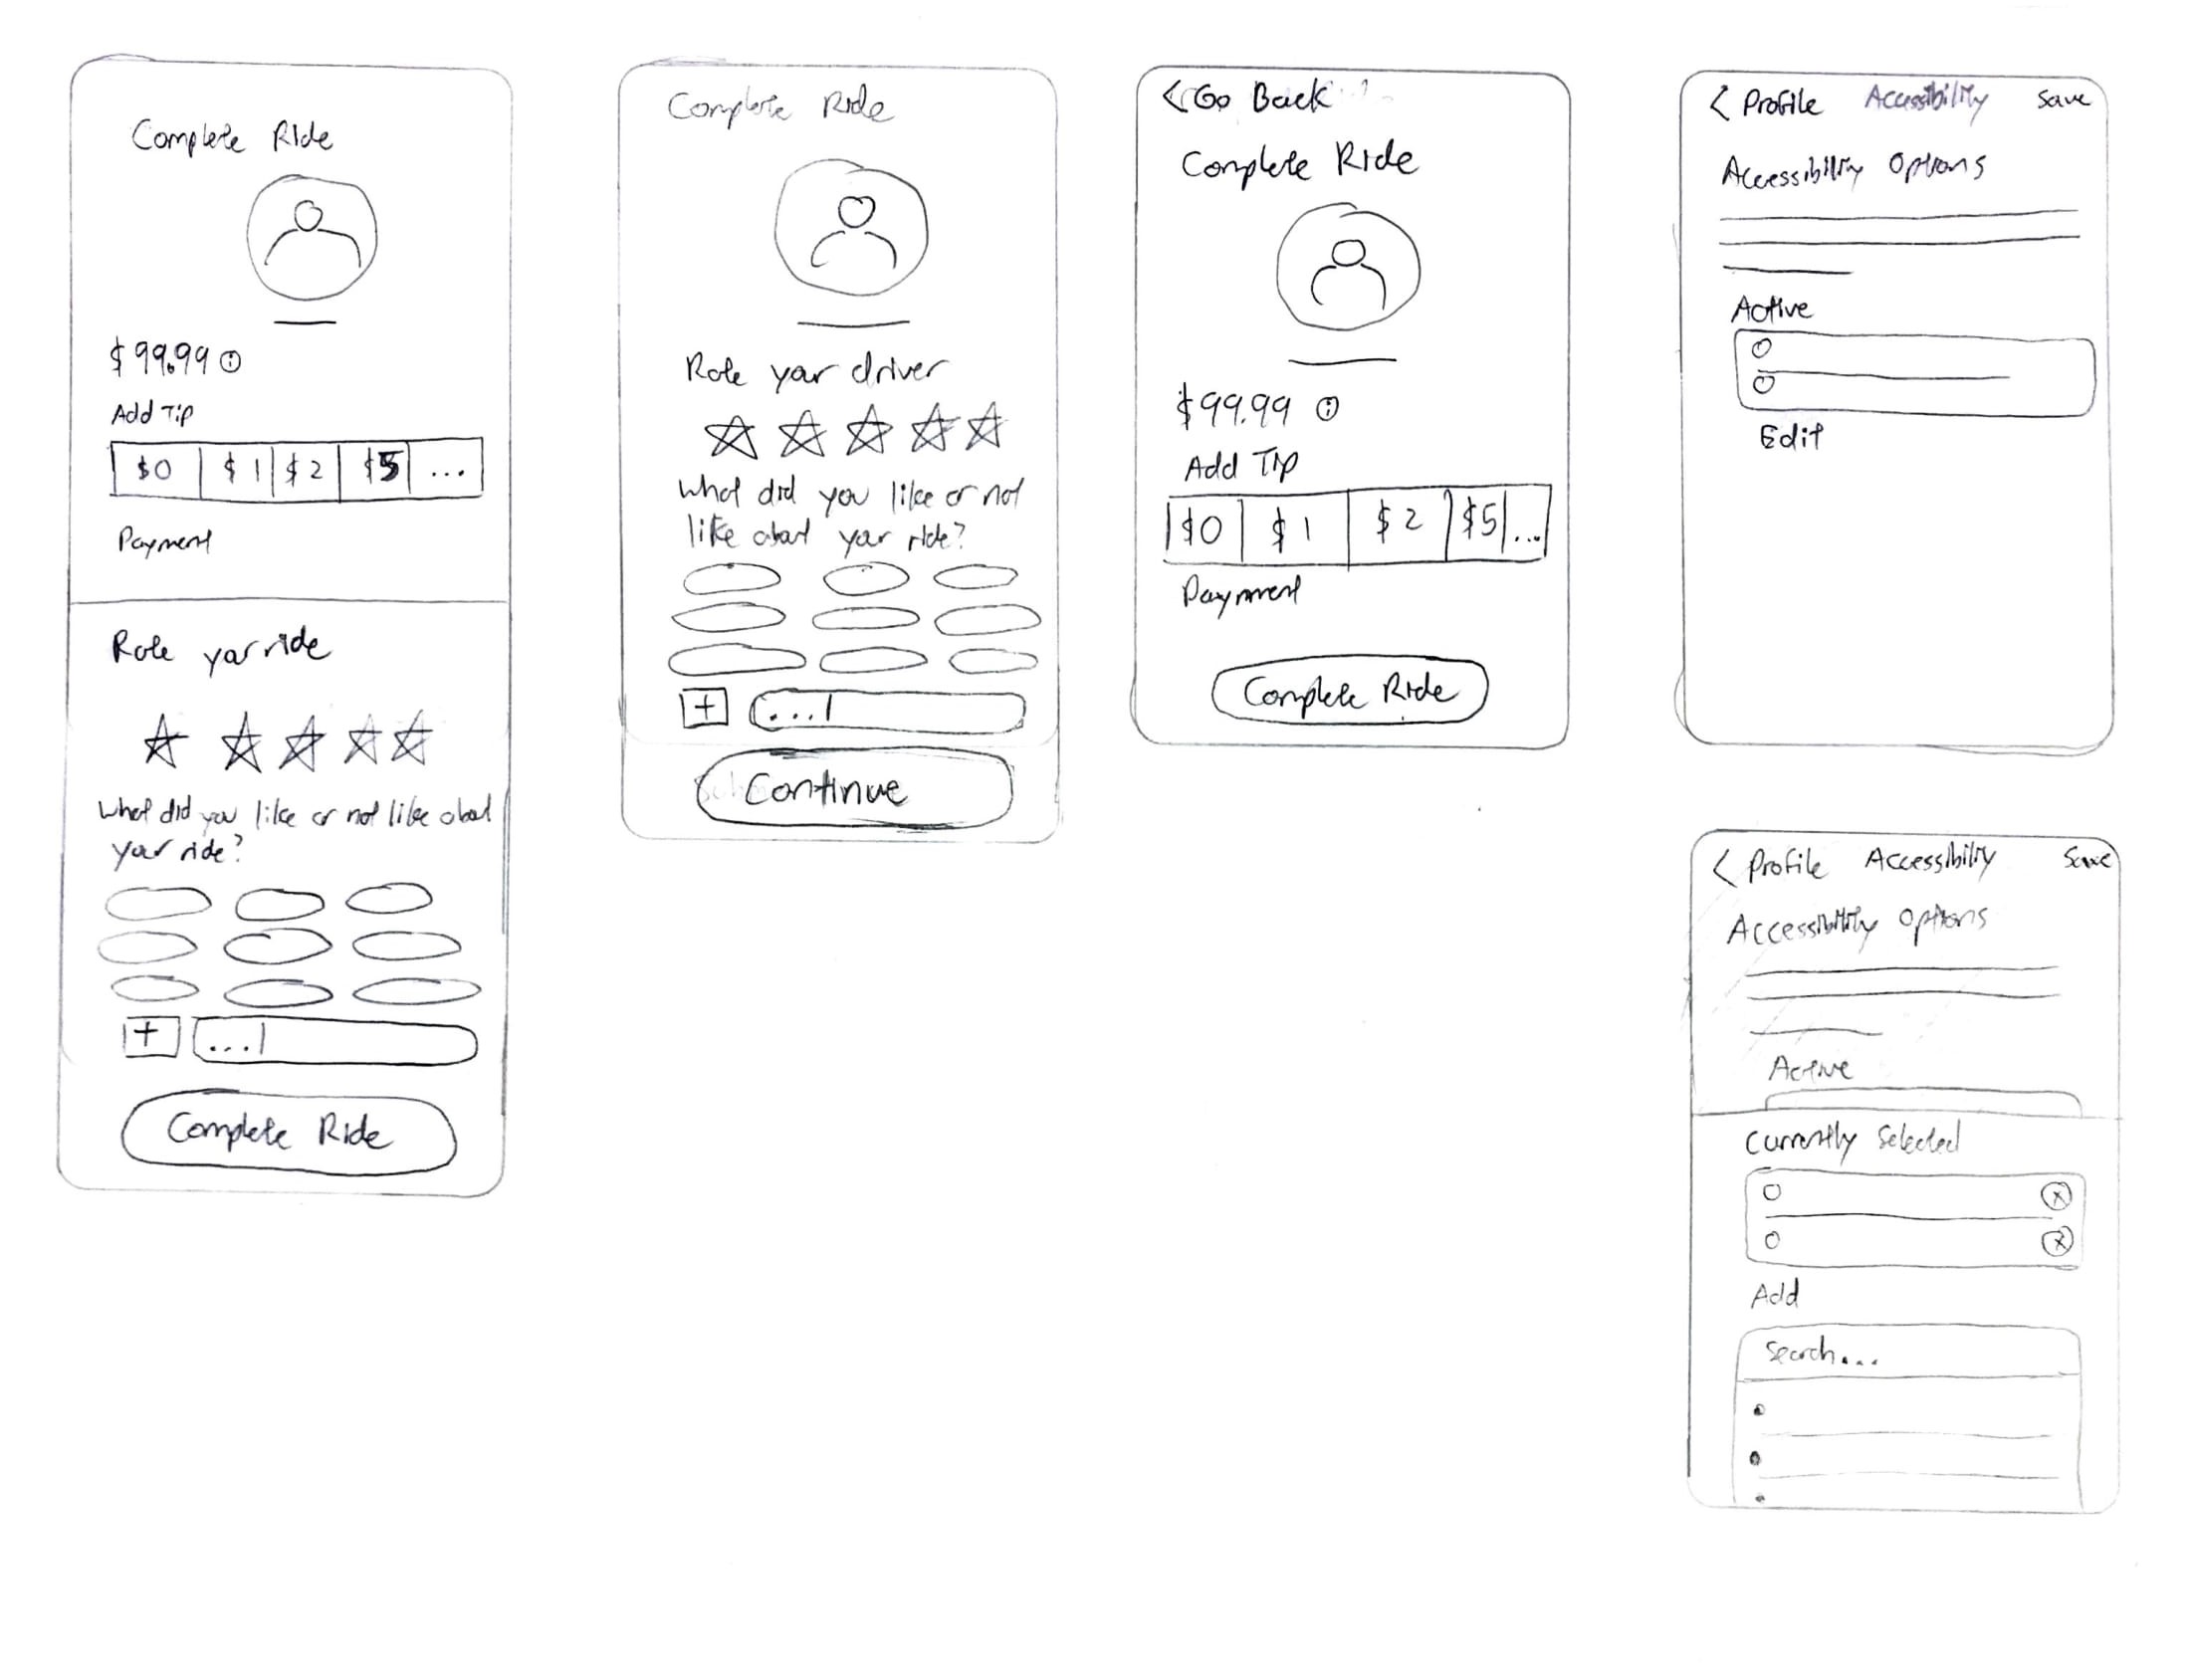 Complete Ride
$99.99
Add Tip
$0 $1 $2 $5 ...
Payment
Rate your ride
What did you like or not like about
your ride?
+ ...|
Complete Ride
Complete Ride
Rate your driver
What did you like or not
like about your ride?
+ ...|
Continue
< Go Back
Complete Ride
$99.99
Add Tip
$0 $1 $2 $5 ...
Payment
Complete Ride
< Profile Accessibility Save
Accessibility Options
Active
Edit
< Profile Accessibility Save
Accessibility Options
Active
Currently Selected
x
x
Add
Search...